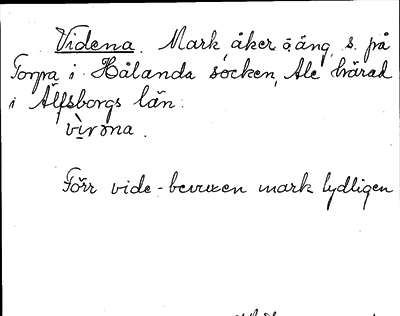 Videna. Mark, åker o äng, s. på
Torpa i Hålanda socken, Ale härad
i Älfsborgs län.
Förr vide-bevuxen mark tydligen